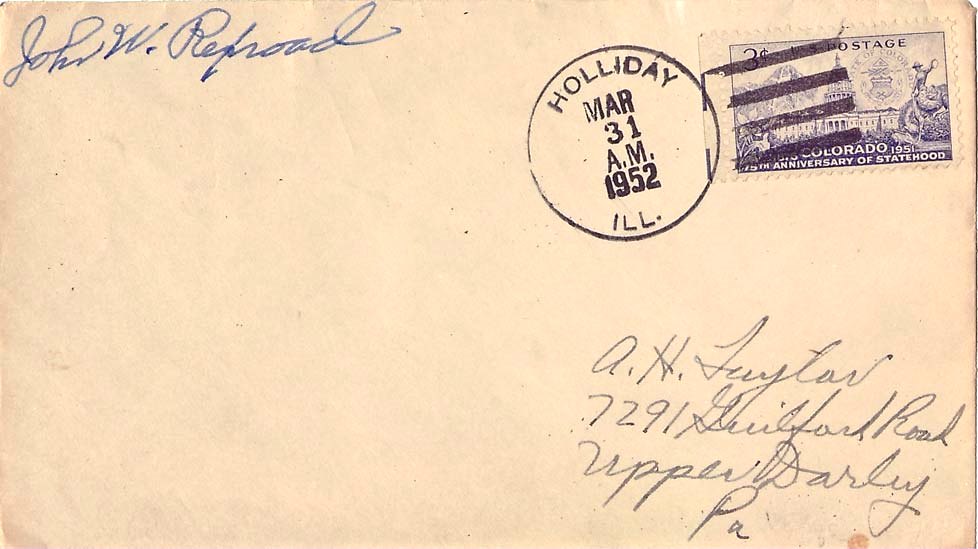 John W. Rexroad
HOLLIDAY
MAR
31
A.M.
1952
ILL.
3¢ U.S. POSTAGE
COLORADO 1951
75TH ANNIVERSARY OF STATEHOOD
A. H. Taylor
7291 Guilford Road
Upper Darby
Pa